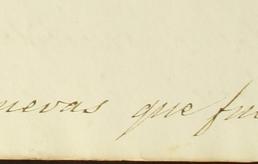 nuevas que fue